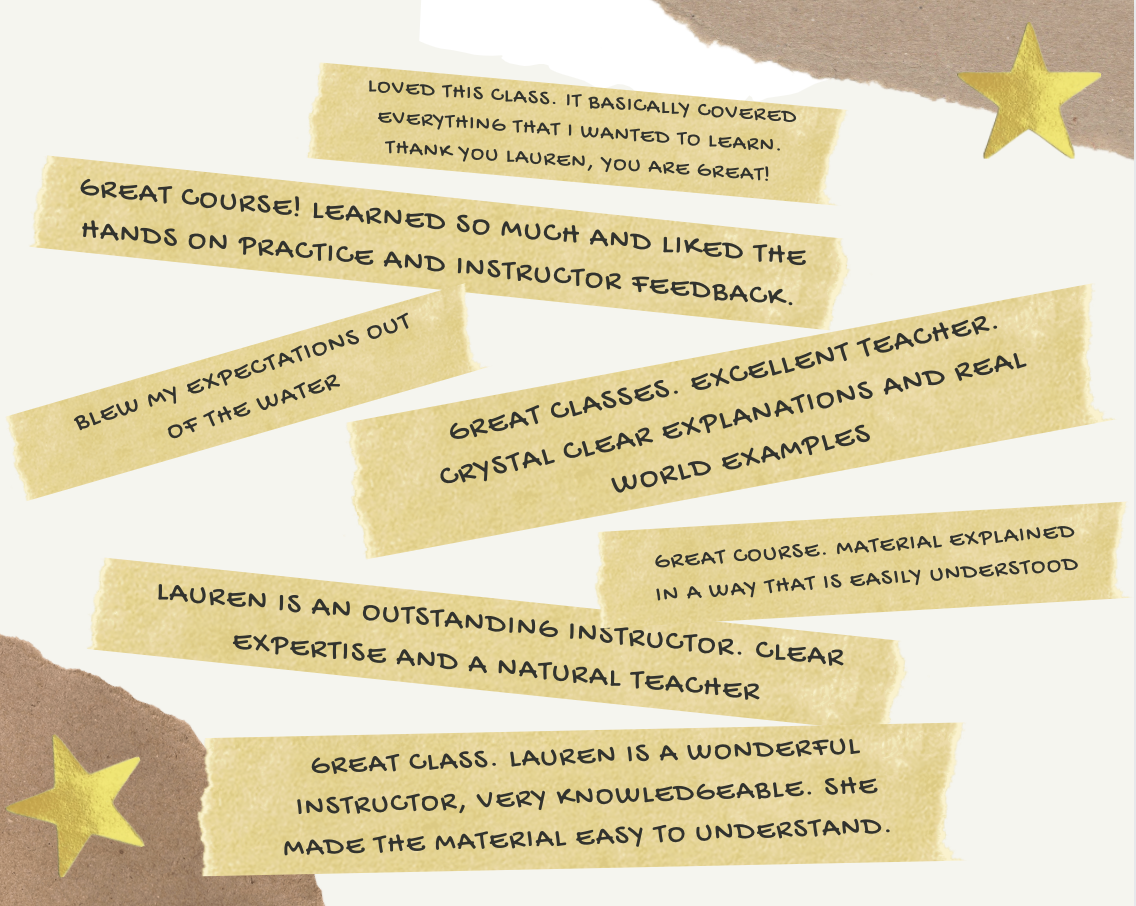 LOVED THIS CLASS. IT BASICALLY COVERED
EVERYTHING THAT I WANTED TO LEARN.
THANK YOU LAUREN, YOU ARE GREAT!
GREAT COURSE! LEARNED SO MUCH AND LIKED THE
HANDS ON PRACTICE AND INSTRUCTOR FEEDBACK.
BLEW MY EXPECTATIONS OUT
OF THE WATER
GREAT CLASSES. EXCELLENT TEACHER.
CRYSTAL CLEAR EXPLANATIONS AND REAL
WORLD EXAMPLES
GREAT COURSE. MATERIAL EXPLAINED
IN A WAY THAT IS EASILY UNDERSTOOD
LAUREN IS AN OUTSTANDING INSTRUCTOR. CLEAR
EXPERTISE AND A NATURAL TEACHER
GREAT CLASS. LAUREN IS A WONDERFUL
INSTRUCTOR, VERY KNOWLEDGEABLE. SHE
MADE THE MATERIAL EASY TO UNDERSTAND.